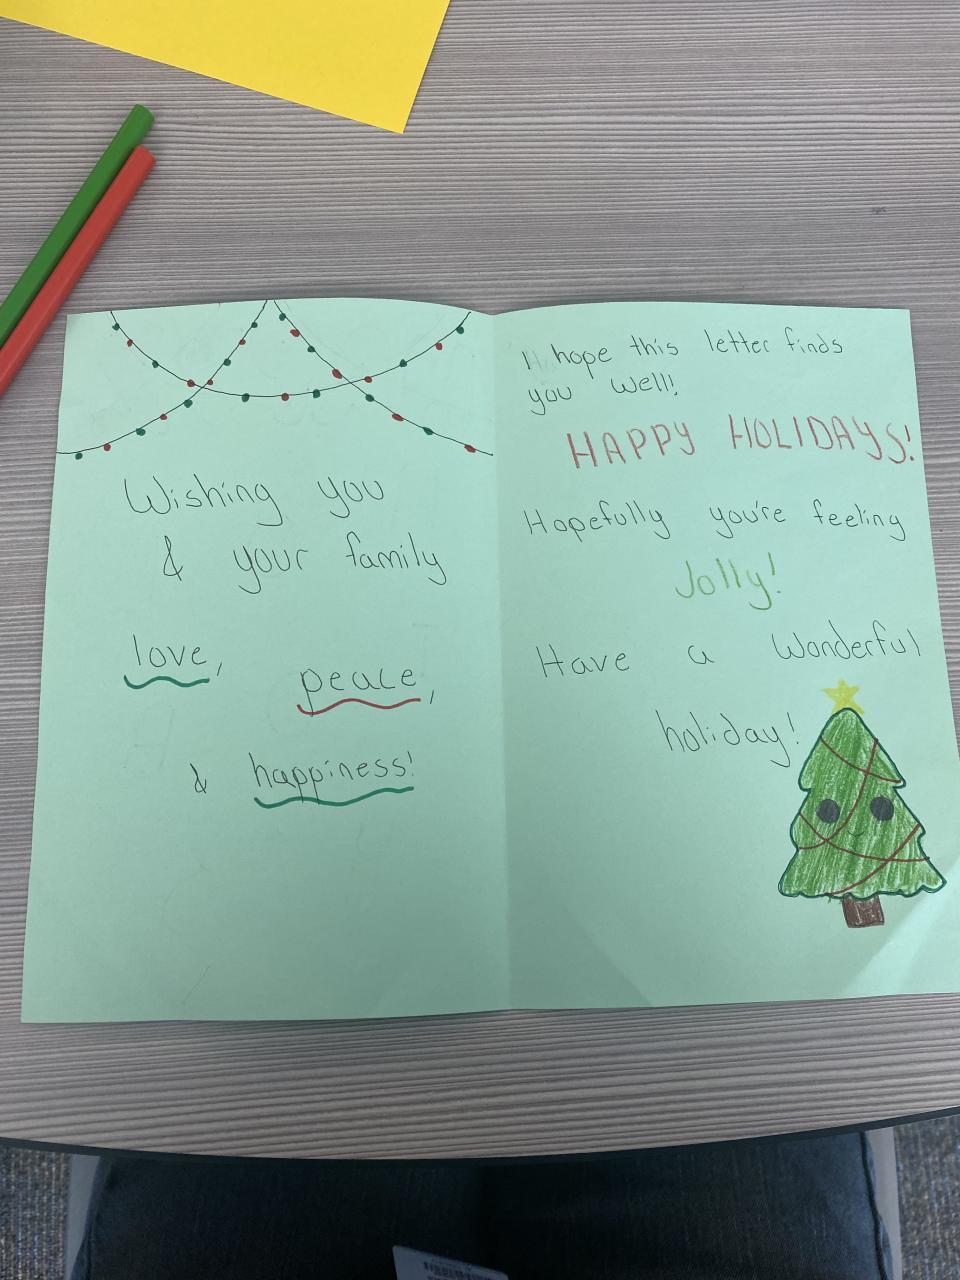 Wishing you
& your family
love,
peace,
& happiness!
I hope this letter finds
you well!
HAPPY HOLIDAYS!
Hopefully you're feeling
Jolly!
Have a Wonderful
holiday!